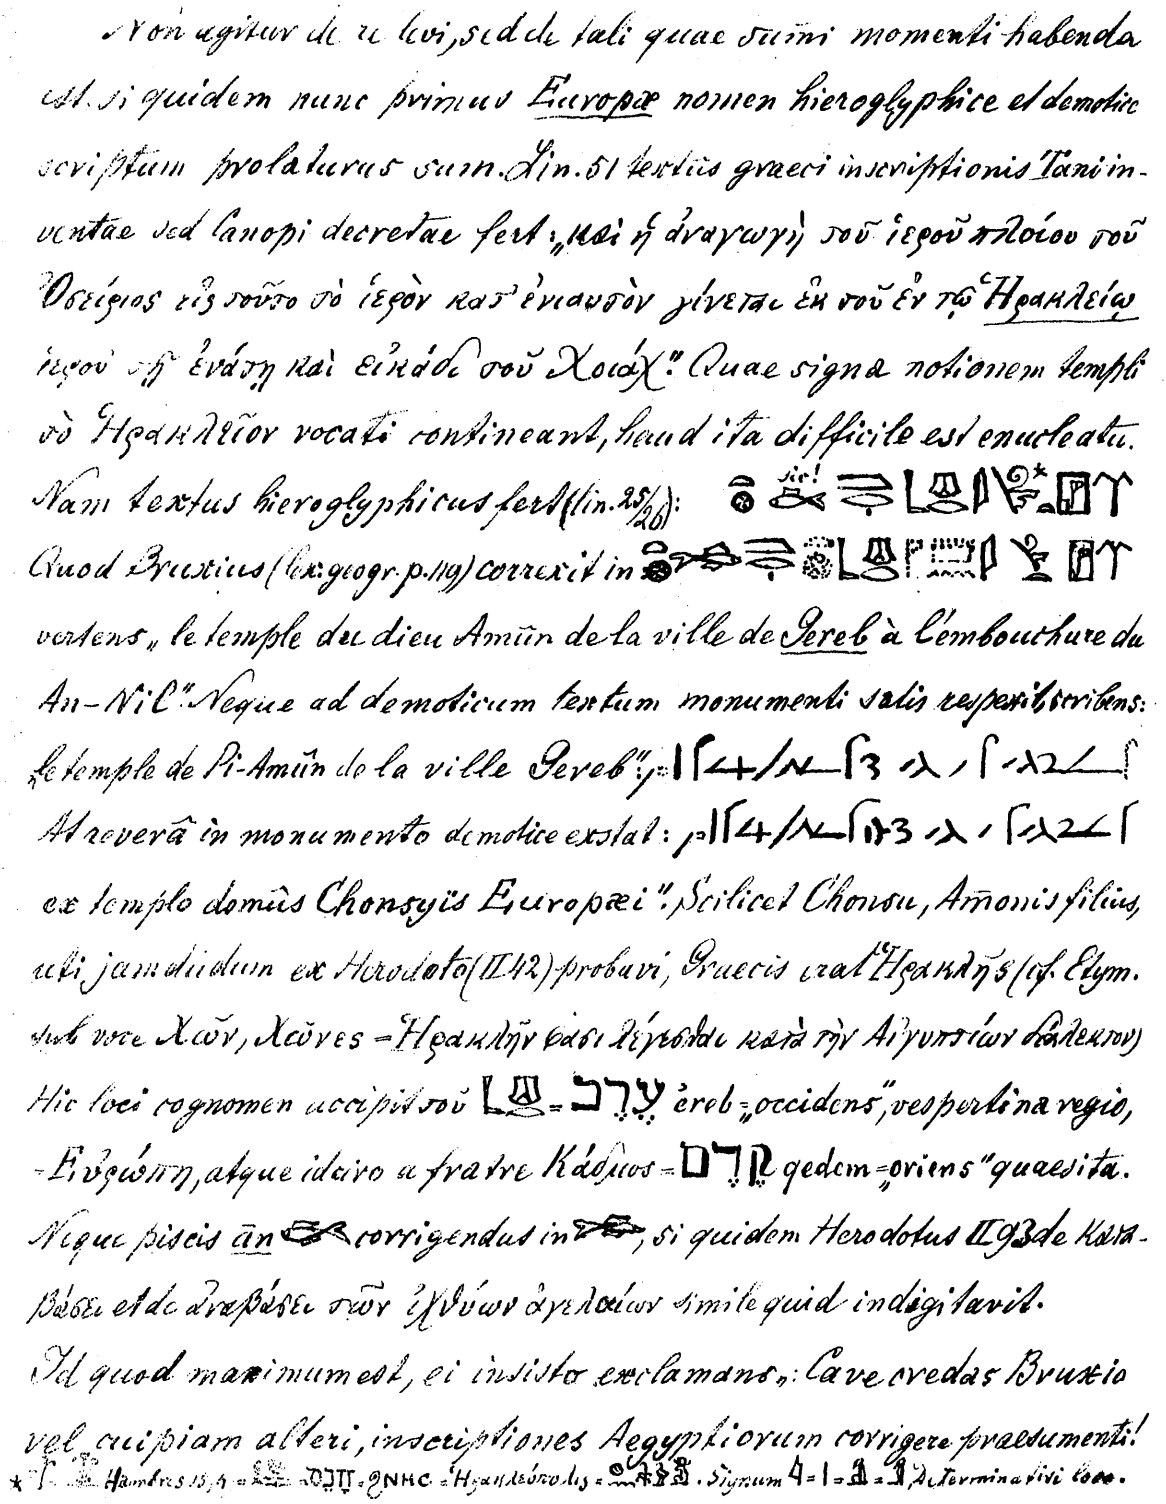 Non agitur de re levi, sed de tali quae sum̄i momenti habenda
est. si quidem nunc primus Europæ nomen hieroglyphice et demotice
scriptum prolaturus sum. Lin. 51 textûs graeci inscriptionis Tani in-
ventae sed Canopi decretae fert: „καὶ ἡ ἀναγωγὴ τοῦ ἱεροῦ πλοίου τοῦ
Ὀσείριος εἰς τοῦτο τὸ ἱερὸν κατ' ἐνιαυτὸν γίνεται ἐκ τοῦ ἐν τῷ Ἡρακλείῳ
ἱεροῦ τῇ ἐνάτῃ καὶ εἰκάδι τοῦ Χοιάχ". Quae signa notionem templi
τὸ Ἡρακλεῖον vocati contineant, haud ita difficile est enucleatu.
Nam textus hieroglyphicus fert (lin. 25/26): sic!
Quod Bruxius (lex. geogr. p. 119) correxit in
vertens „le temple du dieu Amûn de la ville de Gereb à l'embouchure du
An-Nil". Neque ad demoticum textum monumenti satis respexit, scribens:
„le temple de Pi-Amûn de la ville Gereb":
At reverâ in monumento demotice exstat:
ex templo domûs Chonsyïs Europæi". Scilicet Chonsu, Am̄onis filius,
uti jamdudum ex Herodoto (II 42) probavi, Graecis erat Ἡρακλῆς (cf. Etym.
sub voce Χῶν, Χῶνες = Ἡρακλῆν φασι λέγεσθαι κατὰ τὴν Αἰγυπτίων διάλεκτον)
Hic loci cognomen accipit τοῦ = עֶרֶב ἐreb = „occidens", vespertina regio,
- Εὐρώπη, atque idciro a fratre Κάδμος = קֶדֶם qedem = „oriens" quaesita.
Neque piscis ān corrigendus in , si quidem Herodotus II 93 de κατα-
βάσει et de ἀναβάσει τῶν ἰχθύων ἀγελαίων simile quid indigitavit.
Id quod maximum est, ei insisto exclamans„: Cave credas Bruxio
vel cuipiam alteri, inscriptiones Aegyptiorum corrigere praesumenti!
* = חָנֵס = ϩⲛⲏⲥ = Ἡρακλεόπολις = . Signum = = = , Determinativi loco.